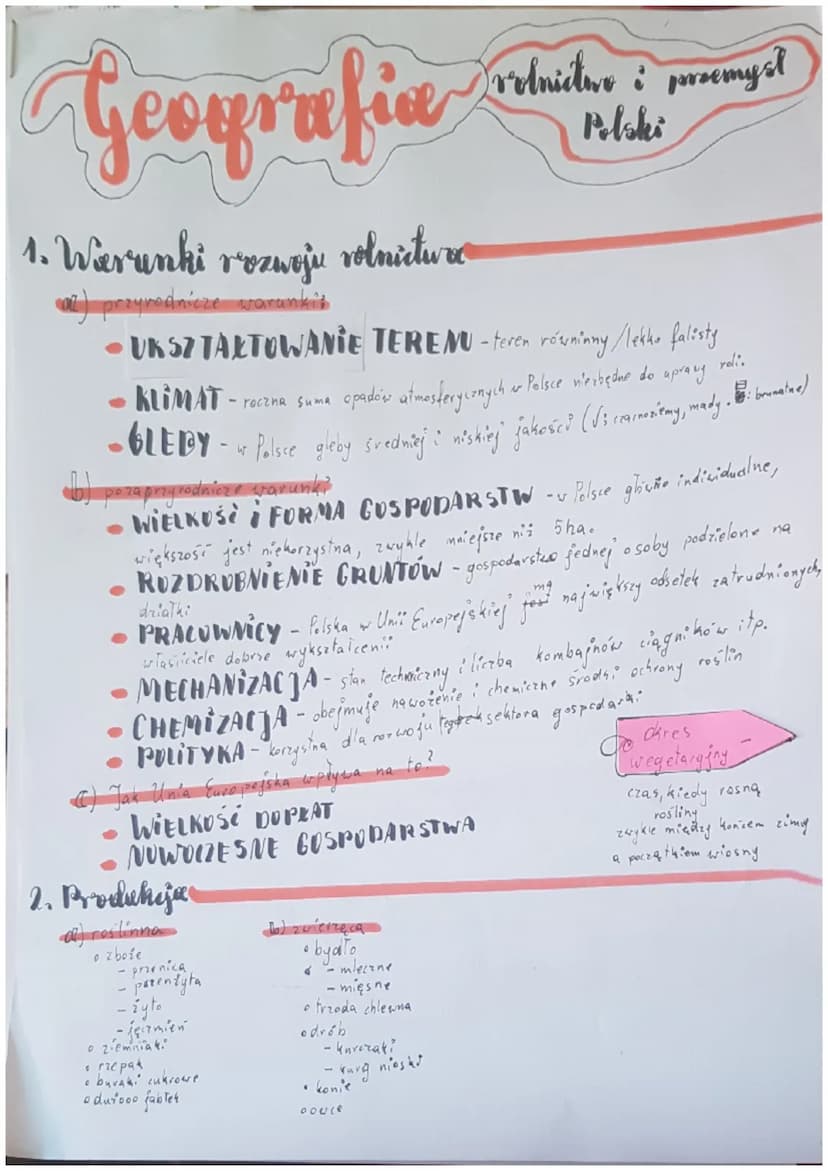 Geografia
rolnictwo i przemysł
Polski
1. Warunki rozwoju rolnictwa
a) przyrodnicze warunki:
UKSZTAŁTOWANIE TERENU - teren równinny/lekko falisty
KLIMAT - roczna suma opadów atmosferycznych w Polsce niezbędne do uprawy roli.
GLEBY - w Polsce gleby średniej i niskiej jakości (√: czarnoziemy, mady. : brunatne)
b) pozaprzyrodnicze warunki
WIELKOŚĆ I FORMA GOSPODARSTW - w Polsce główne indywidualne,
większość jest niekorzystna, zwykle mniejsze niż 5ha.
ROZDROBNIENIE GRUNTÓW - gospodarstwo jednej osoby podzielone na
działki
PRACOWNICY - Polska w Unii Europejskiej ma największy odsetek zatrudnionych,
właściciele dobrze wykształceni
MECHANIZACJA - stan techniczny i liczba kombajnów ciągników itp.
CHEMIZACJA - obejmuje nawożenie i chemiczne środki ochrony roślin
POLITYKA - korzystna dla rozwoju sektora gospodarki
c) Jak Unia Europejska wpływa na to?
WIELKOŚĆ DOPŁAT
NOWOCZESNE GOSPODARSTWA
okres
wegetacyjny -
czas, kiedy rosną
rośliny
zwykle między końcem zimy
a początkiem wiosny
2. Produkcja
a) roślinna
zboże
- przenica
- pszenżyta
- żyto
- jęczmień
ziemniaki
rzepak
buraki cukrowe
dużooo jabłek
b) zwierzęca
bydło
- mleczne
- mięsne
trzoda chlewna
drób
- kurczaki
- kury nioski
konie
owce